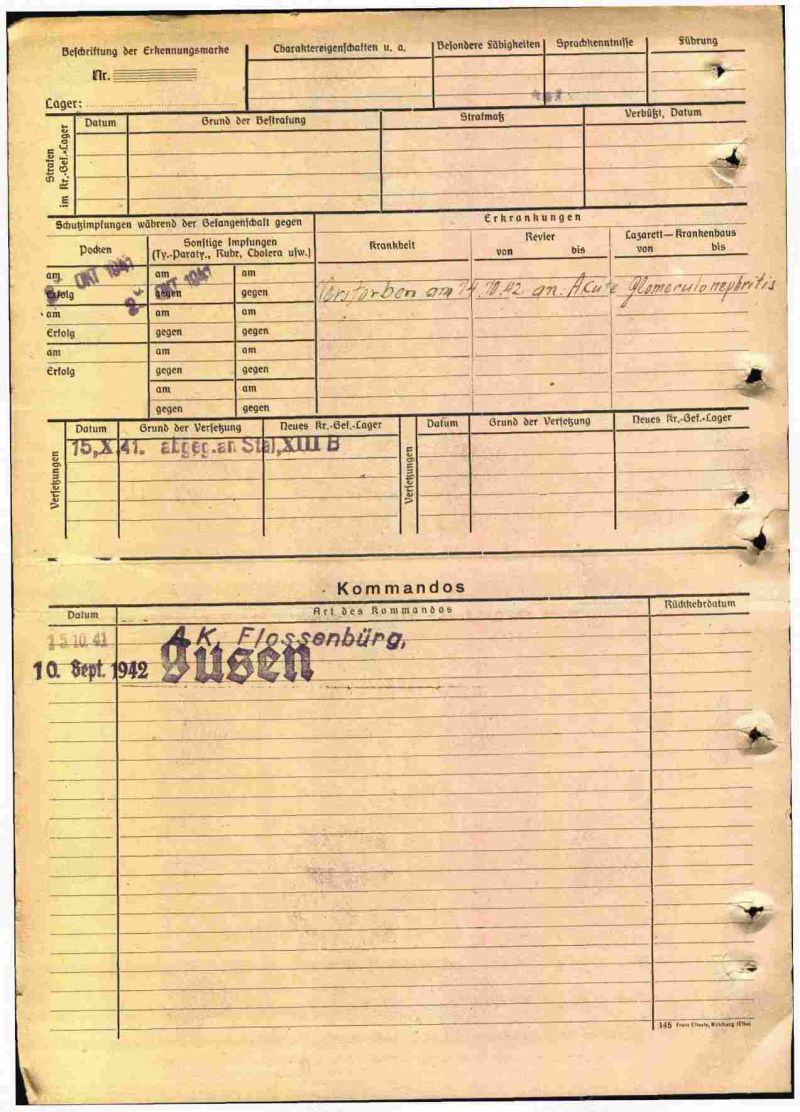 Beschriftung der Erkennungsmarke
Nr.
Lager:
Charaktereigenschaften u. a.
Besondere Fähigkeiten
Sprachkenntnisse
Führung
Strafen im Kr.-Gef.-Lager
Datum
Grund der Bestrafung
Strafmaß
Verbüßt, Datum
Schutzimpfungen während der Gefangenschaft gegen
Erkrankungen
Pocken
Sonstige Impfungen
(Ty.-Paraty., Ruhr, Cholera usw.)
Krankheit
Revier
von bis
Lazarett—Krankenhaus
von bis
am am am
OKT 1941 OKT 1941
Erfolg gegen gegen
Verstorben am 14.10.42 an. Akute Glomerulonephritis
am am am
Erfolg gegen gegen
am am am
Erfolg gegen gegen
am am
gegen gegen
Versetzungen
Datum Grund der Versetzung Neues Kr.-Gef.-Lager
15.X.41. abgeg.an Stal.XIII B
Versetzungen
Datum Grund der Versetzung Neues Kr.-Gef.-Lager
Kommandos
Datum Art des Kommandos Rückkehrdatum
15.10.41 A.K. Flossenbürg,
10. Sept. 1942 Gusen
145